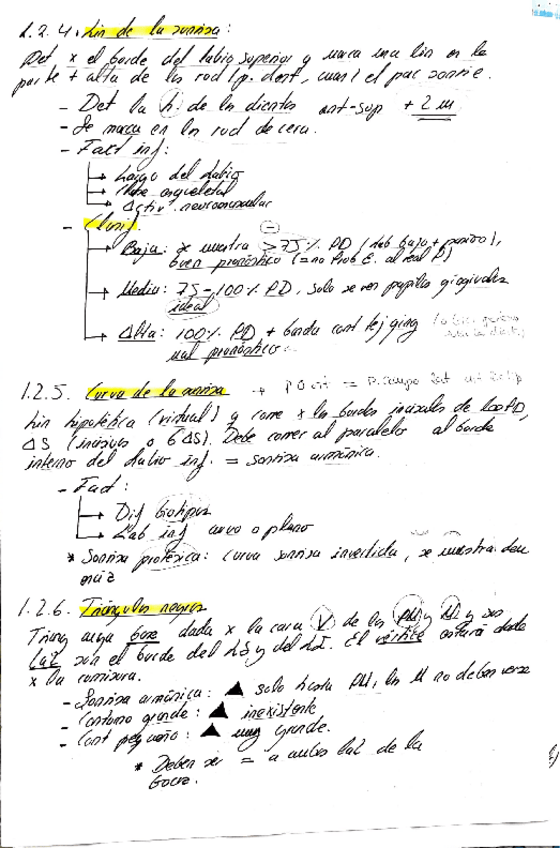 1.2.4. Lin de la sonrisa:
Det x el borde del labio superior y marca una lin en la
parte + alta de los rod (p. dent, cuan) el pac sonrie.
- Det la h. de ln dientes ant-sup + 2 m
- Se marca en ln rod de cera.
- Fact inf:
→ Largo del labio
→ Clase esqueletal
→ Activ. neuromuscular
- Clasif.
→ Baja: x muestra > 75% PD (lab bajo +
buen pronóstico (= no Prob E. al real P)
→ Media: 75-100% PD, solo se ven papilas gingivales
ideal
→ Alta: 100% PD + banda cont tej ging
mal pronóstico
1.2.5. Curva de la sonrisa → P Oest = P.
Lin hipotética (virtual) y corre x los bordes incisales de los PD,
ΔS (incisivos o 6 ΔS). Debe correr al paralelo al borde
interno del labio inf. = sonrisa armónica.
- Fact:
→ Dif biotipos
→ Lab inf curvo o plano
* Sonrisa protésica: curva sonrisa invertida, se muestra
1.2.6. Triángulos negros
Triang cuya base dada x la cara V de los PM y M y sus
Lat son el borde del LS y del LI. El vértice estará dado
x la comisura.
- Sonrisa armónica: ▲ solo hasta PM, ln M no deben verse
- Contorno grande: ▲ inexistente
- Cont pequeño: ▲ muy grande.
* Deben ser = a ambos lat de la
boca.